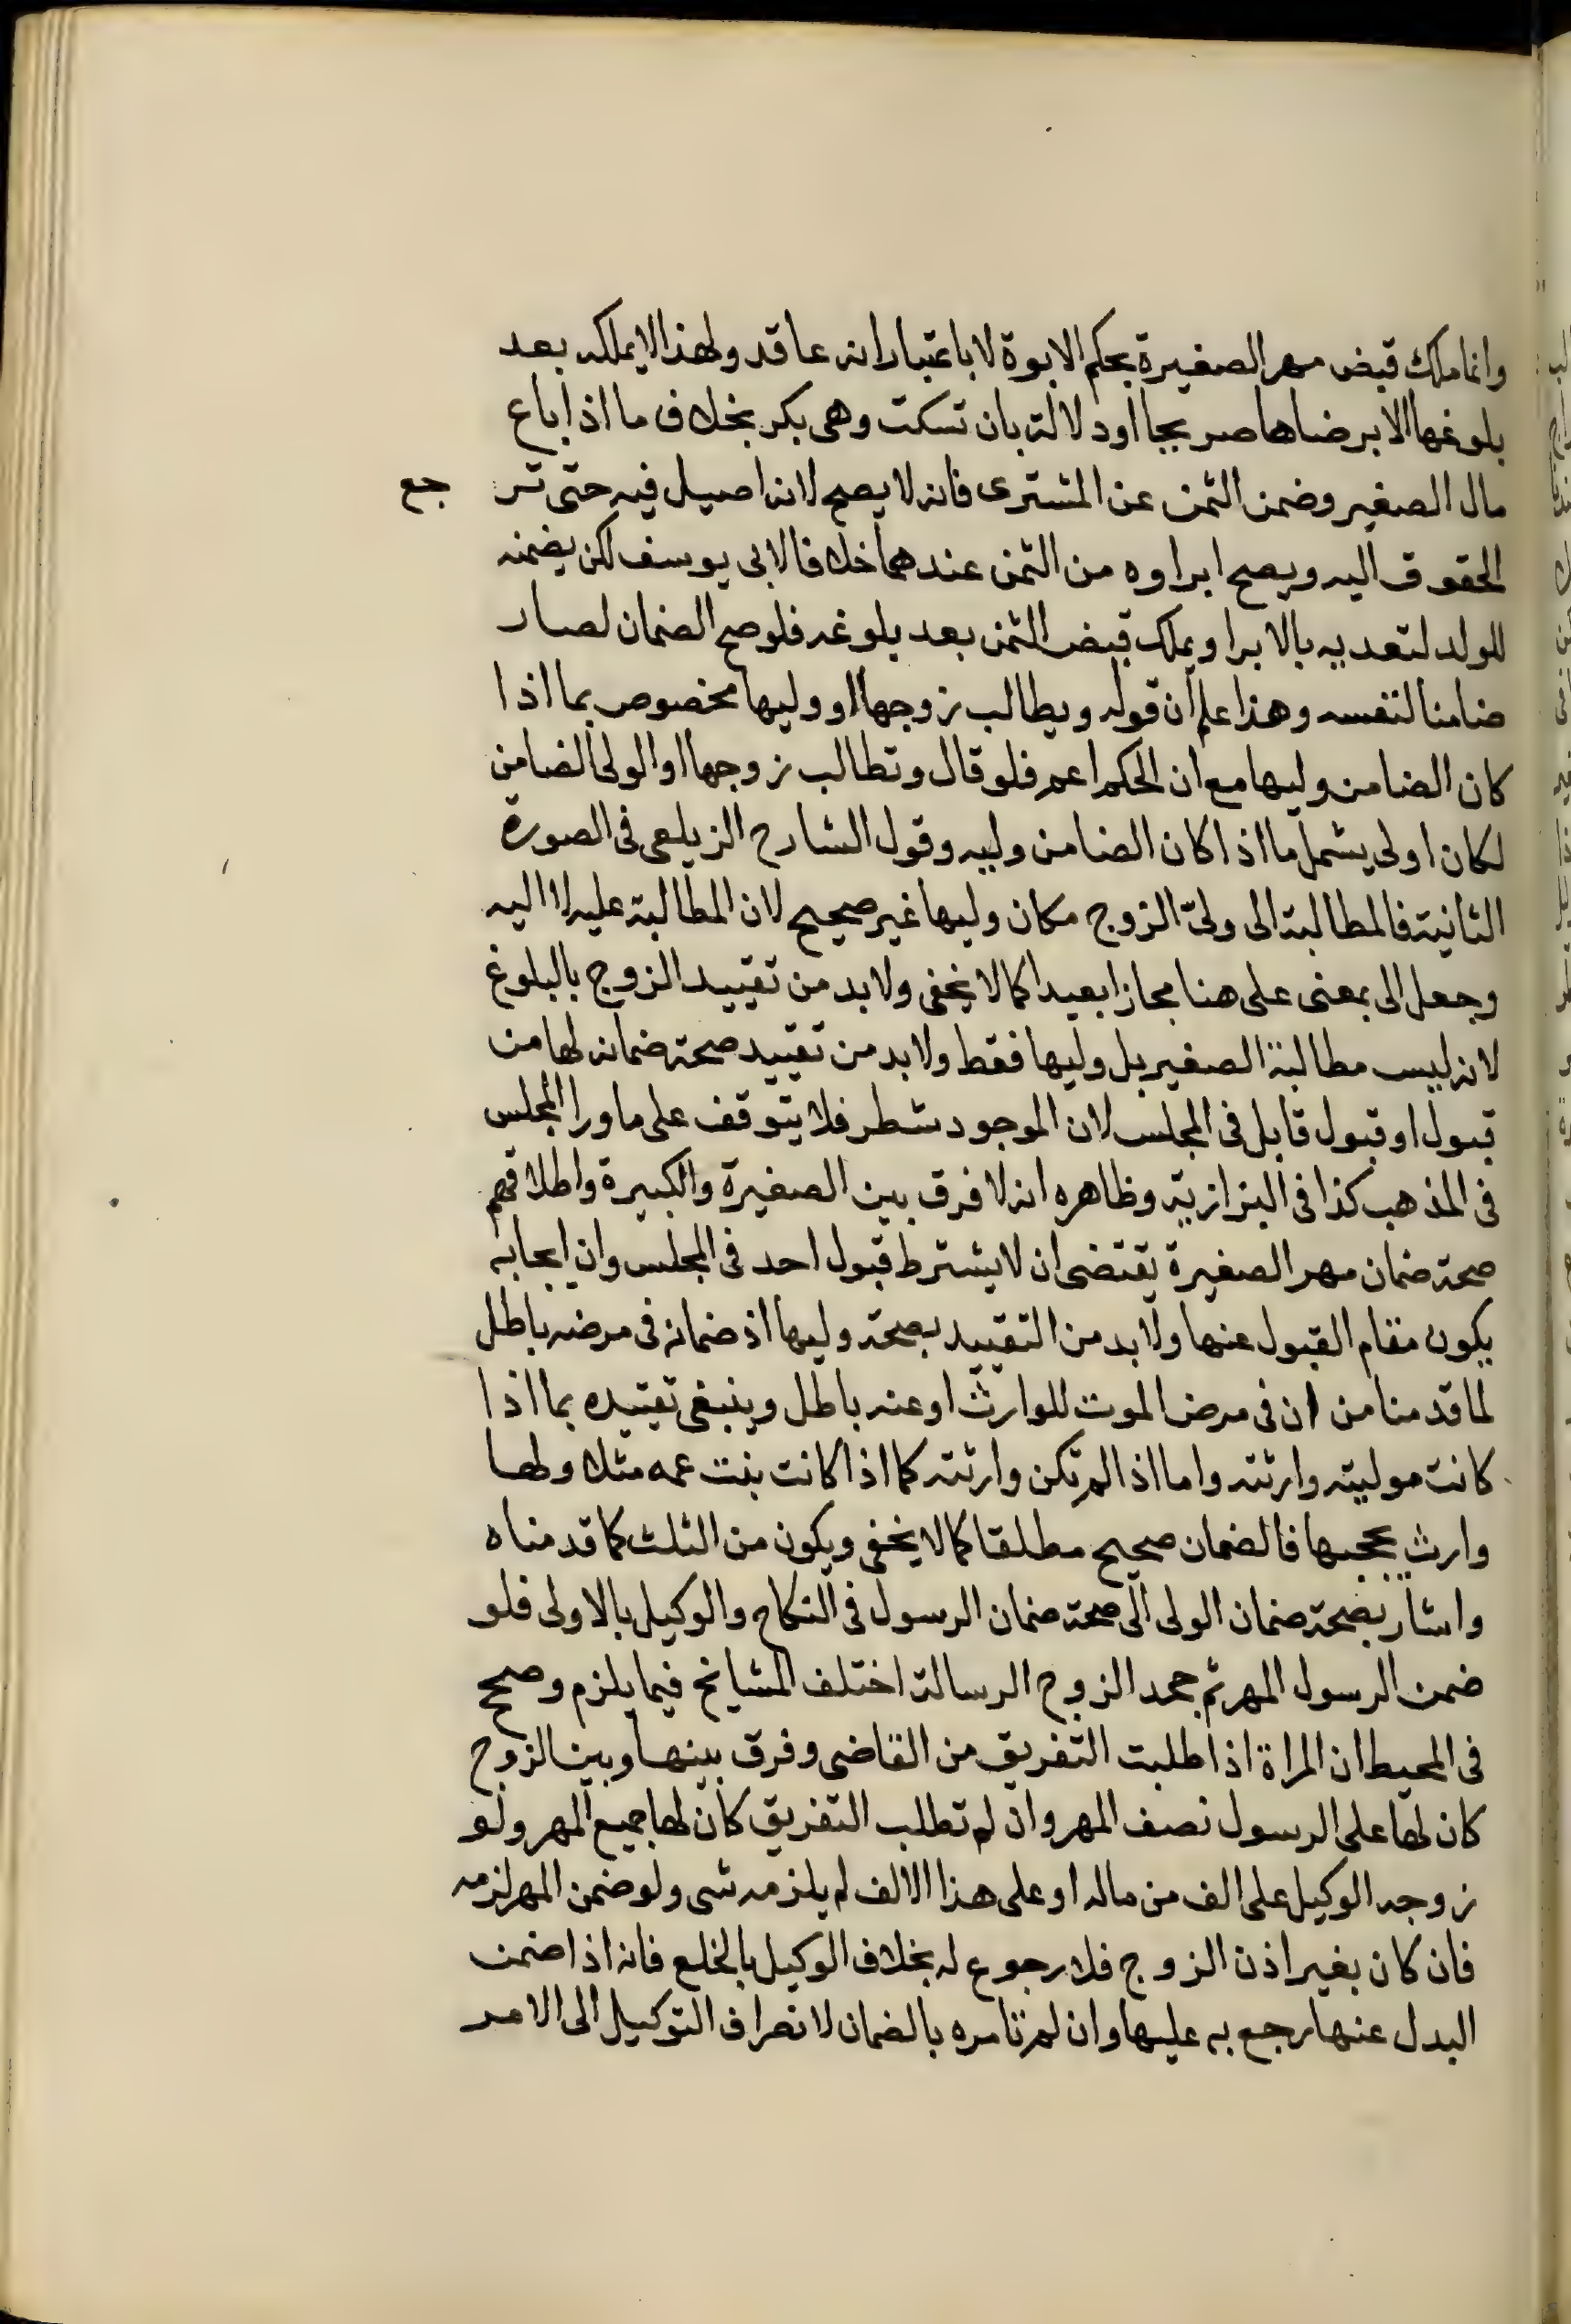 وانما ملك قبض مهر الصغيرة بحكم الابوة لا باعتبار انه عاقد ولهذا لا يملكه بعد
بلوغها الا برضاها صريحا او دلالة بان تسكت وهى بكر بخلاف ما اذا باع
مال الصغير وضمن الثمن عن المشترى فانه لا يصح لانه اصيل فيه حتى تر جع
الحقوق اليه ويصح ابراوه من الثمن عندهما خلافا لابى يوسف لكن يضمنه
للولد لتعديه بالابرا ويملك قبض الثمن بعد بلوغه فلو صح الضمان لصار
ضامنا لنفسه وهذا علم ان قوله ويطالب زوجها او وليها مخصوص بما اذا
كان الضامن وليها مع ان الحكم اعم فلو قال وتطالب زوجها او الولى الضامن
لكان اولى يشمل ما اذا كان الضامن وليه وقول الشارح الزيلعى فى الصورة
الثانية فالمطالبة الى ولىّ الزوج مكان وليها غير صحيح لان المطالبة عليه لا اليه
وجعل الى بمعنى على هنا مجازا بعيدا كما لا يخفى ولا بد من تقييد الزوج بالبلوغ
لانه ليس مطالبة الصغير بل وليها فقط ولا بد من تقييد صحة ضمانه لها من
قبول او قبول قابل فى المجلس لان الموجود شطر فلا يتوقف على ما ورا المجلس
فى المذهب كذا فى البزازية وظاهره انه لا فرق بين الصغيرة والكبيرة واطلاقهم
صحة ضمان مهر الصغيرة تقتضى ان لا يشترط قبول احد فى المجلس وان ايجابه
يكون مقام القبول عنها ولا بد من التقييد بصحة وليها اذ ضمانه فى مرضه باطل
لما قدمنا من ان فى مرض الموت للوارث او عنه باطل وينبغى تقييده بما اذا
كانت موليته وارثته واما اذا لم تكن وارثته كما اذا كانت بنت عمه مثلا ولها
وارث يحجبها فالضمان صحيح مطلقا كما لا يخفى ويكون من الثلث كما قدمناه
واشار بصحة ضمان الولى الى صحة ضمان الرسول فى النكاح والوكيل بالاولى فلو
ضمن الرسول المهر ثم جحد الزوج الرسالة اختلف المشايخ فيما يلزم وصحح
فى المحيط ان المراة اذا طلبت التفريق من القاضى وفرق بينها وبين الزوج
كان لها على الرسول نصف المهر وان لم تطلب التفريق كان لها جميع المهر ولو
زوجه الوكيل على الف من ماله او على هذا الالف لم يلزمه شى ولو ضمن المهر لزمه
فان كان بغير اذن الزوج فلا رجوع له بخلاف الوكيل بالخلع فانه اذا ضمن
البدل عنها رجع به عليها وان لم تامره بالضمان لانصراف التوكيل الى الامر